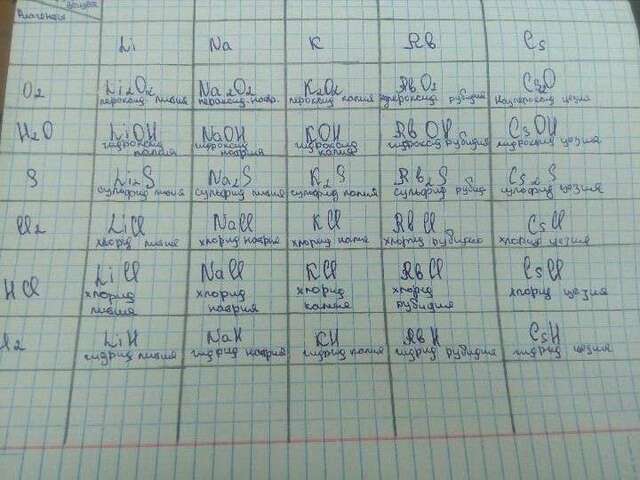 Реагенты
Li Na K Rb Cs
O2 Li2O2 Na2O2 K2O2 RbO2 Cs2O
пероксид лития пероксид натр. пероксид калия надпероксид рубидия надпероксид цезия
H2O LiOH NaOH KOH RbOH CsOH
гидроксид гидроксид гидроксид гидроксид рубидия гидроксид цезия
лития натрия калия
S Li2S Na2S K2S Rb2S Cs2S
сульфид лития сульфид лития сульфид калия сульфид рубид сульфид цезия
Cl2 LiCl NaCl KCl RbCl CsCl
хлорид лития хлорид натрия хлорид калия хлорид рубидия хлорид цезия
HCl LiCl NaCl KCl RbCl CsCl
хлорид хлорид хлорид хлорид хлорид цезия
лития натрия калия рубидия
H2 LiH NaH KH RbH CsH
гидрид лития гидрид натрия гидрид калия гидрид рубидия гидрид цезия